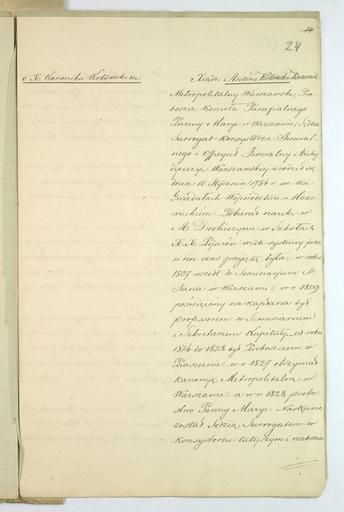 24
o X. Kanoniku Kotowskim
Xiądz Antoni Kotowski Kanonik
Metropolitalny Warszawski, Pro-
boszcz Kościoła Parafialnego
Panny Maryi w Warszawie, Sędzia
Surrogat Konsystorza Jeneral-
nego i Officyał Jeneralny Archi-
dyecezyi Warszawskiej urodził się
dnia 10 Stycznia 1784 r. w
Województwie Mazo-
wieckiem. Pobierał nauki w
M. Drohiczynie w Szkołach
X.X. Pijarów wedle systemu jaki
w ten czas przyjęty był; w roku
1807 wszedł do Seminaryum St.
Jana w Warszawie; w r. 1809
poświęcony na kapłana był
professorem w Seminarium
i Sekretarzem Kapituły, od roku
1814 do 1828 był Proboszczem w
Piasecznie w r. 1827 otrzymał
kanonię Metropolitalną w
Warszawie a w r. 1828 probo-
stwo Panny Maryi. Następnie
został Sędzią Surrogatem w
Konsystorzu tutejszym i